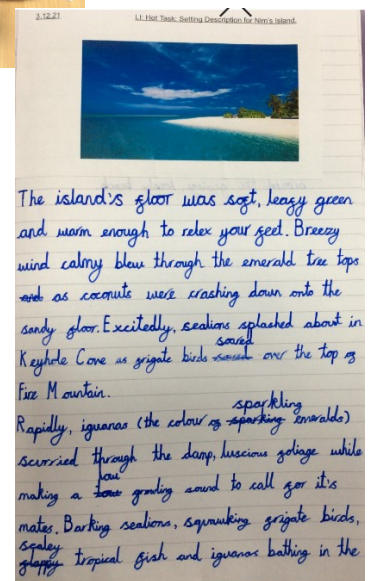 3.12.21
LI: Hot Task: Setting Description for Nim's Island.
The island's floor was soft, leafy green
and warm enough to relex your feet. Breezy
wind calmy blew through the emerald tree tops
and as coconuts were crashing down onto the
sandy floor. Excitedly, sealions splashed about in
soared
Keyhole Cove as frigate birds over the top of
Fire Mountain.
sparkling
Rapidly, iguanas (the colour of sparking emeralds)
scurried through the damp, luscious foliage while
low
making a grinding sound to call for it's
mates. Barking sealions, squawking frigate birds,
scaley
tropical fish and iguanas bathing in the